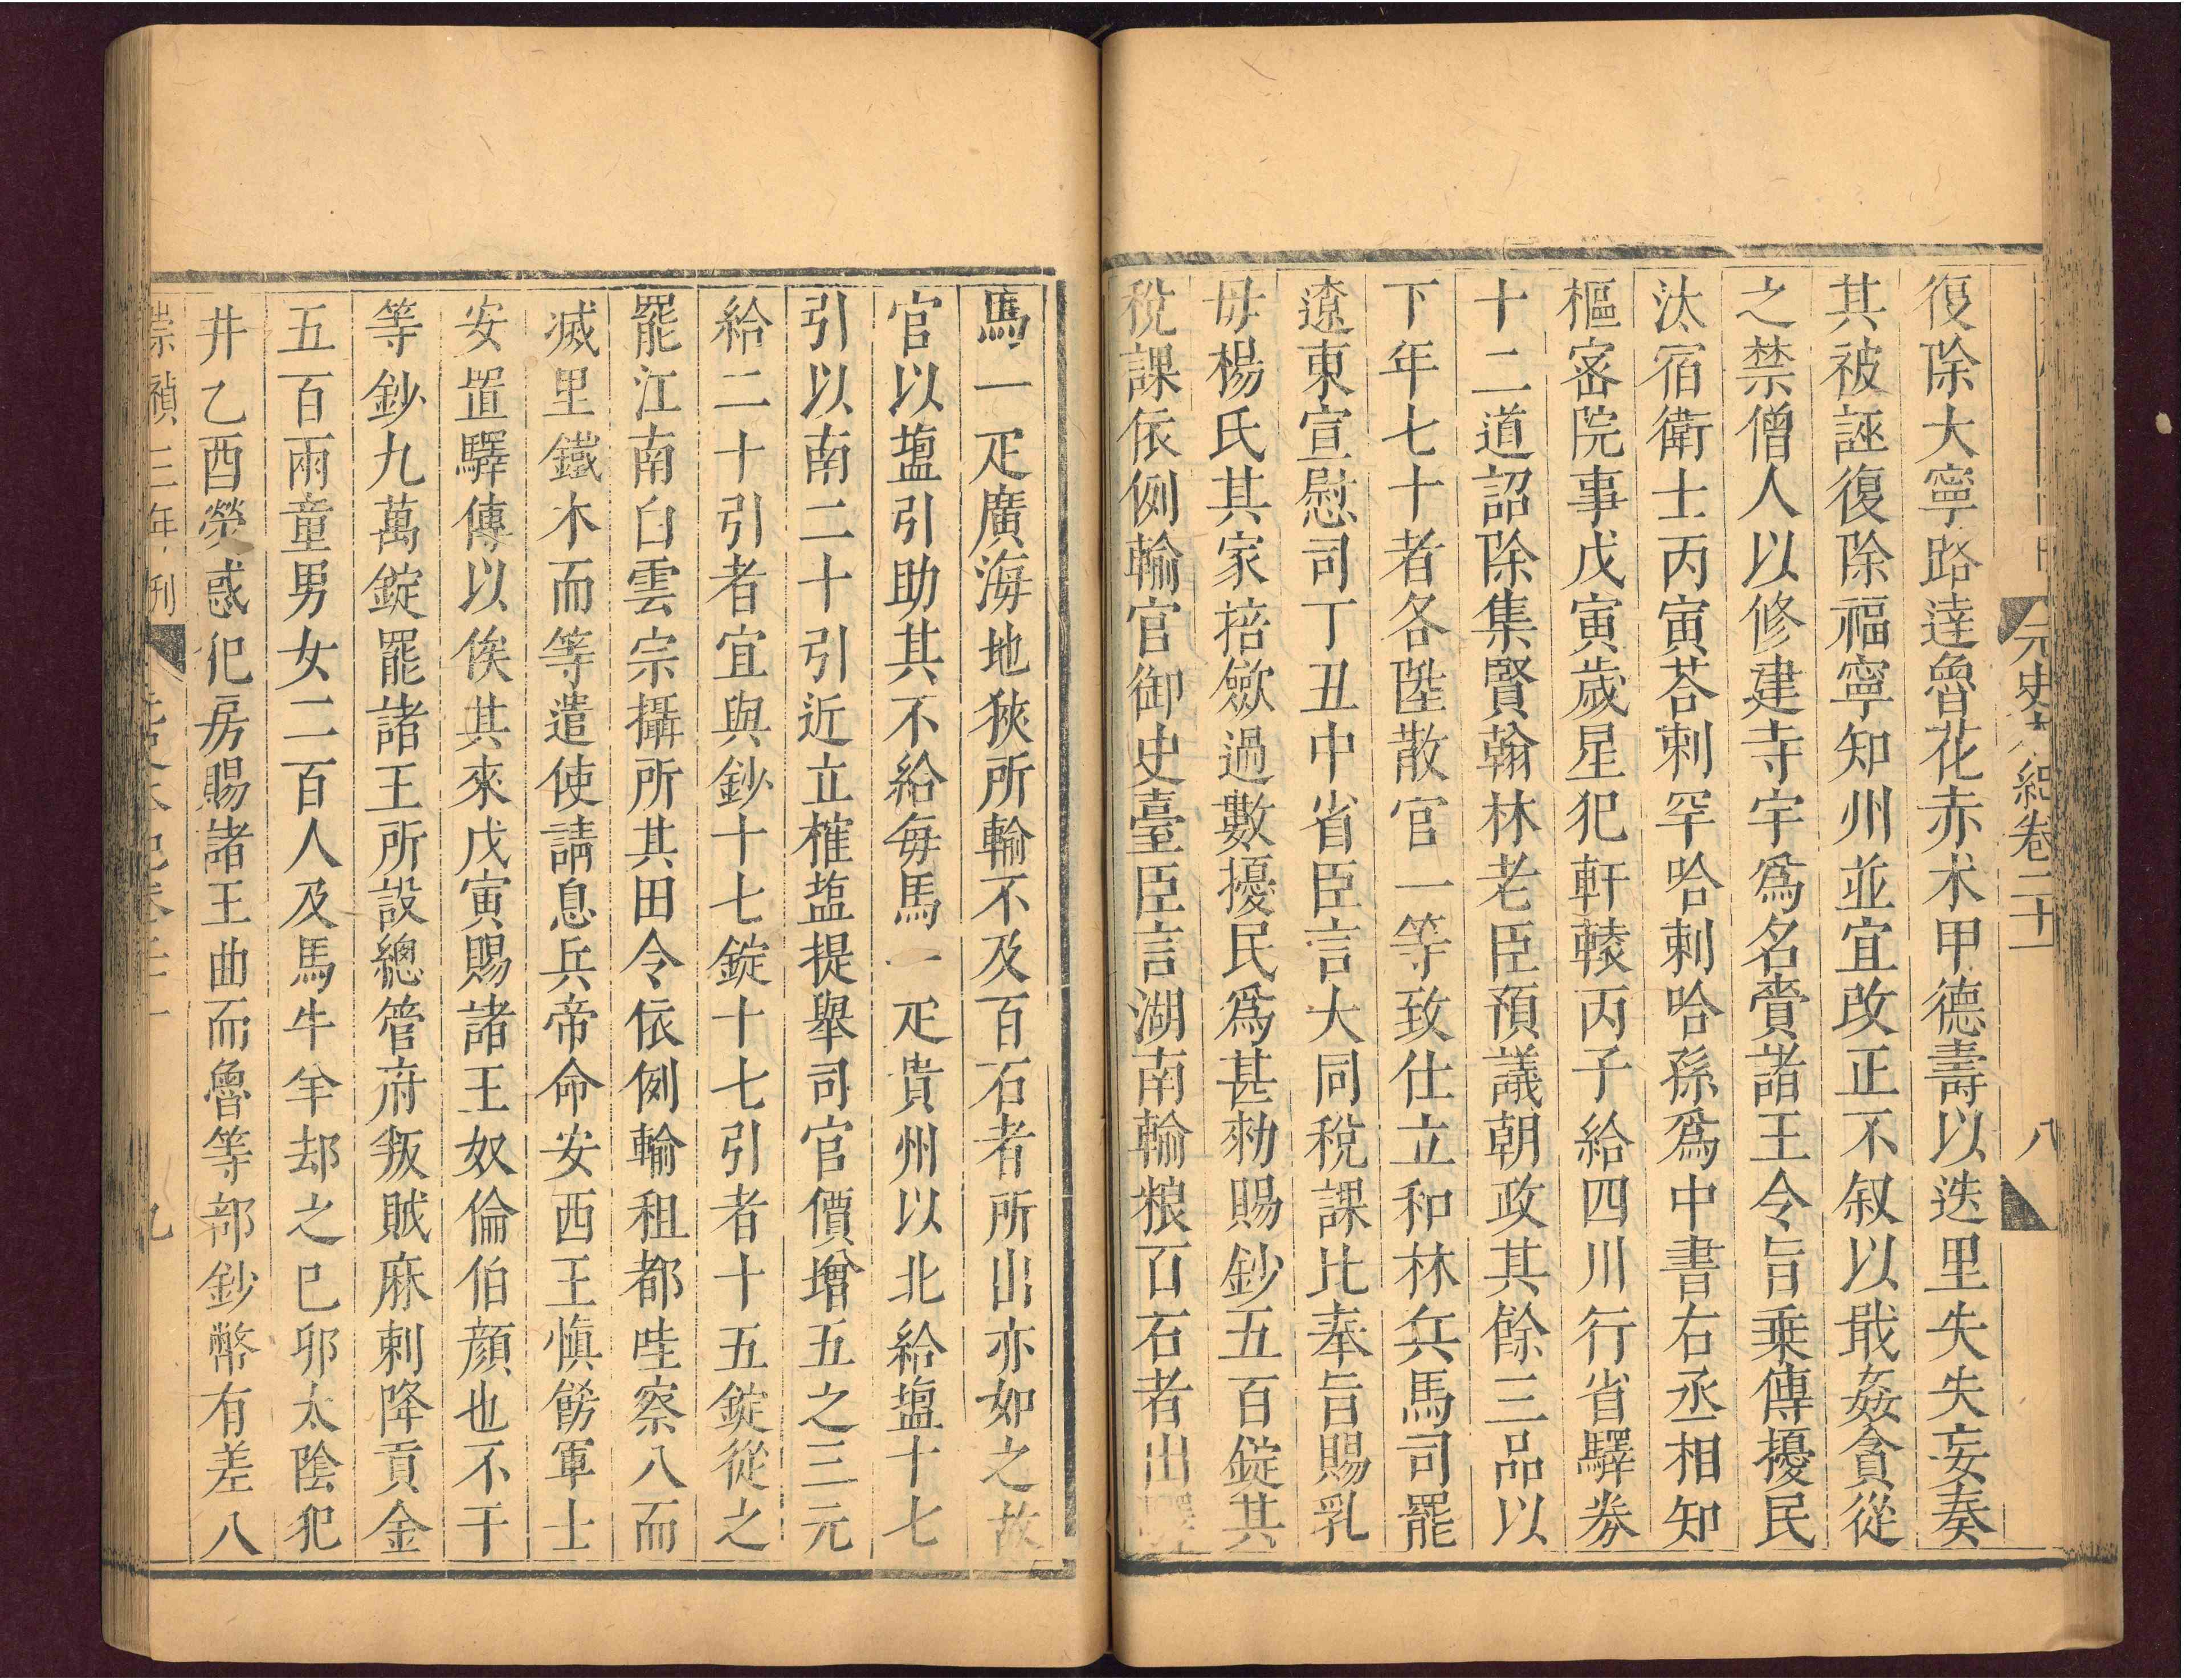 元史 紀卷二十一 八
復除大寧路達魯花赤术甲德壽以迭里失失妄奏
其被誣復除福寧知州並宜改正不叙以戢姦貪從
之禁僧人以修建寺宇爲名賫諸王令旨乗傳擾民
汰宿衛士丙寅荅刺罕哈剌哈孫爲中書右丞相知
樞宻院事戊寅歲星犯軒轅丙子給四川行省驛券
十二道詔除集賢翰林老臣預議朝政其餘三品以
下年七十者各陞散官一等致仕立和林兵馬司罷
遼東宣慰司丁丑中省臣言大同稅課比奉旨賜乳
母楊氏其家掊歛過數擾民爲甚勑賜鈔五百錠其
稅課依例輸官御史臺臣言湖南輸粮百石者出驛
馬一疋廣海地狹所輸不及百石者所出亦如之故
官以塩引助其不給每馬一疋貴州以北給塩十七
引以南二十引近立榷塩提舉司官價增五之三元
給二十引者宜與鈔十七錠十七引者十五錠從之
罷江南白雲宗攝所其田令依例輸租都哇察八而
滅里鐵木而等遣使請息兵帝命安西王愼飭軍士
安置驛傳以俟其來戊寅賜諸王奴倫伯顔也不干
等鈔九萬錠罷諸王所設總管府叛賊麻剌降貢金
五百兩童男女二百人及馬牛羊却之巳卯太陰犯
井乙酉熒惑犯房賜諸王曲而魯等部鈔幣有差八
崇禎三年刊 元史本紀卷二十一 九